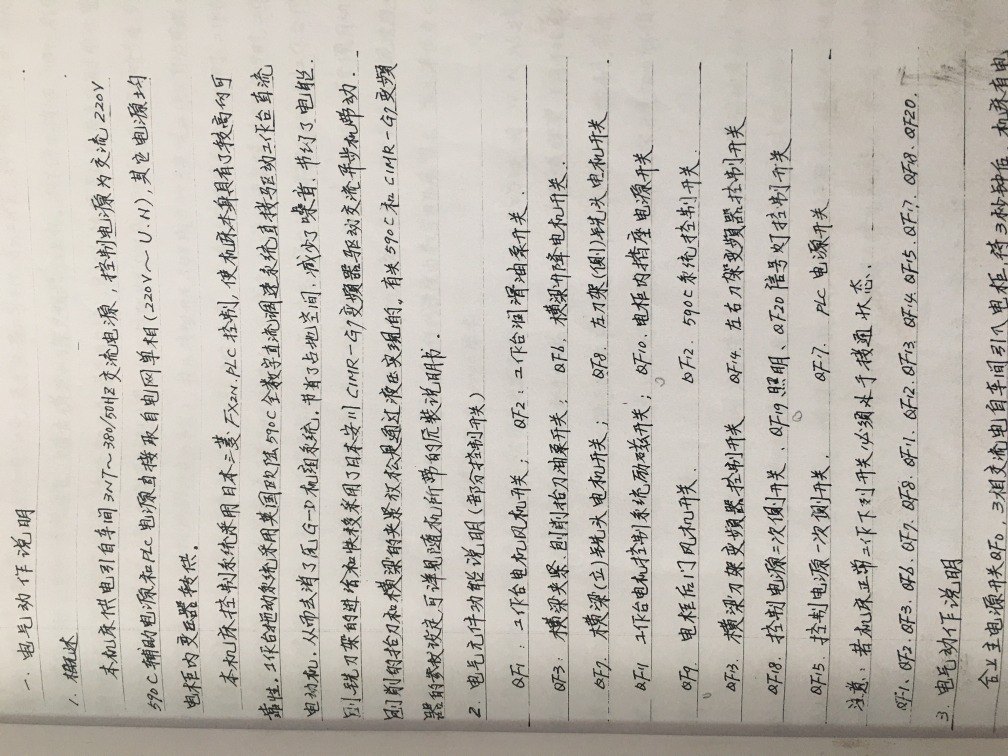 一、电气动作说明
1. 概述
本机床供电引自车间3NT～380/50HZ交流电源，控制电源为交流220V
590C辅助电源和PLC电源直接取自电网单相(220V～U.N)，其它电源均
电柜内变压器转供。
本机床控制系统采用日本三菱FX2N.PLC控制，使机床本身具有了较高的可
靠性。工作台拖动系统采用英国欧陆590C全数字直流调速系统直接驱动工作台直流
电动机，从而去消了瓦G-D机组系统，节省了占地空间，减少了噪音，节约了电能。
刨铣刀架的进给和快移采用了日本安川CIMR-G7变频器驱动交流异步机带动。
刨削的抬刀和横梁的夹紧放松是通过液压实现的。有关590C和CIMR-G7变频
器的参数设定可详见随机所带的厂家说明书。
2. 电气元件功能说明(部分控制开关)
QF1: 工作台电机风机开关; QF2: 工作台润滑油泵开关
QF3. 横梁夹紧刨削抬刀油泵开关; QF6. 横梁升降电机开关.
QF7. 横梁(立)铣头电机开关; QF8. 左刀架(侧)铣头电机开关
QF11 工作台电机控制系统励磁开关; QF10. 电柜内插座电源开关
QF9. 电柜后门风机开关. QF12. 590C系统控制开关.
QF13 横梁刀架变频器控制开关 QF14. 左右刀架变频器控制开关
QF18. 控制电源二次侧开关、QF19照明、QF20信号灯控制开关
QF15. 控制电源一次侧开关. QF17. PLC电源开关
注意: 若机床正常工作下列开关必须处于接通状态.
QF1. QF2. QF3. QF6. QF7. QF8. QF11. QF12. QF13. QF14. QF15. QF17. QF18. QF20.
3. 电气动作说明
合上主电源开关QF0. 3相交流电自车间引入电柜. 待3秒钟后.